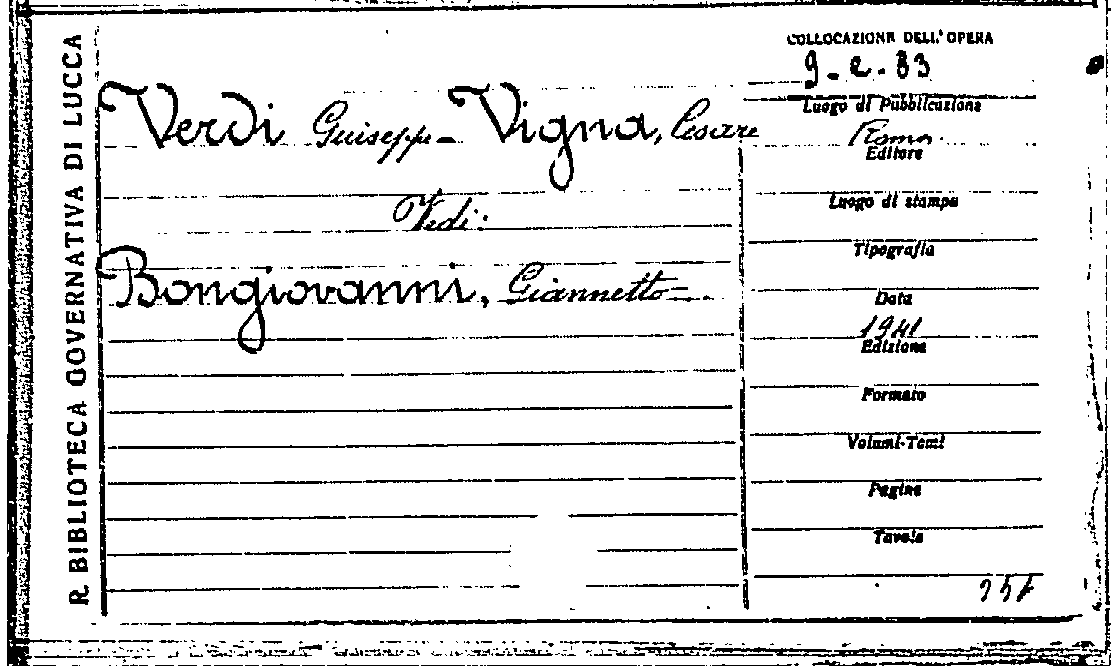 R. BIBLIOTECA GOVERNATIVA DI LUCCA
Verdi Giuseppe - Vigna, Cesare
Vedi:
Bongiovanni, Giannetto
COLLOCAZIONE DELL'OPERA
9-e-83
Luogo di Pubblicazione
Roma
Editore
Luogo di stampa
Tipografia
Data
1941
Edizione
Formato
Volumi-Tomi
Pagine
Tavole